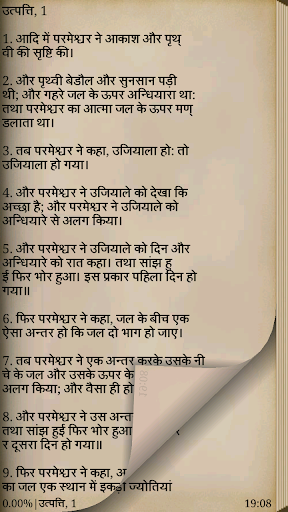 उत्पत्ति, 1
1. आदि में परमेश्वर ने आकाश और पृथ्
वी की सृष्टि की।
2. और पृथ्वी बेडौल और सुनसान पड़ी
थी; और गहरे जल के ऊपर अन्धियारा था:
तथा परमेश्वर का आत्मा जल के ऊपर मण्
डलाता था।
3. तब परमेश्वर ने कहा, उजियाला हो: तो
उजियाला हो गया।
4. और परमेश्वर ने उजियाले को देखा कि
अच्छा है; और परमेश्वर ने उजियाले को
अन्धियारे से अलग किया।
5. और परमेश्वर ने उजियाले को दिन और
अन्धियारे को रात कहा। तथा सांझ हु
ई फिर भोर हुआ। इस प्रकार पहिला दिन हो
गया॥
6. फिर परमेश्वर ने कहा, जल के बीच एक
ऐसा अन्तर हो कि जल दो भाग हो जाए।
7. तब परमेश्वर ने एक अन्तर करके उसके नी
चे के जल और उसके ऊपर के
अलग किया; और वैसा ही हो
8. और परमेश्वर ने उस अन्त
तथा सांझ हुई फिर भोर हुआ
र दूसरा दिन हो गया॥
9. फिर परमेश्वर ने कहा,
का जल एक स्थान में इकट्ठा ज्योतियां
0.00% | उत्पत्ति, 1 19:08